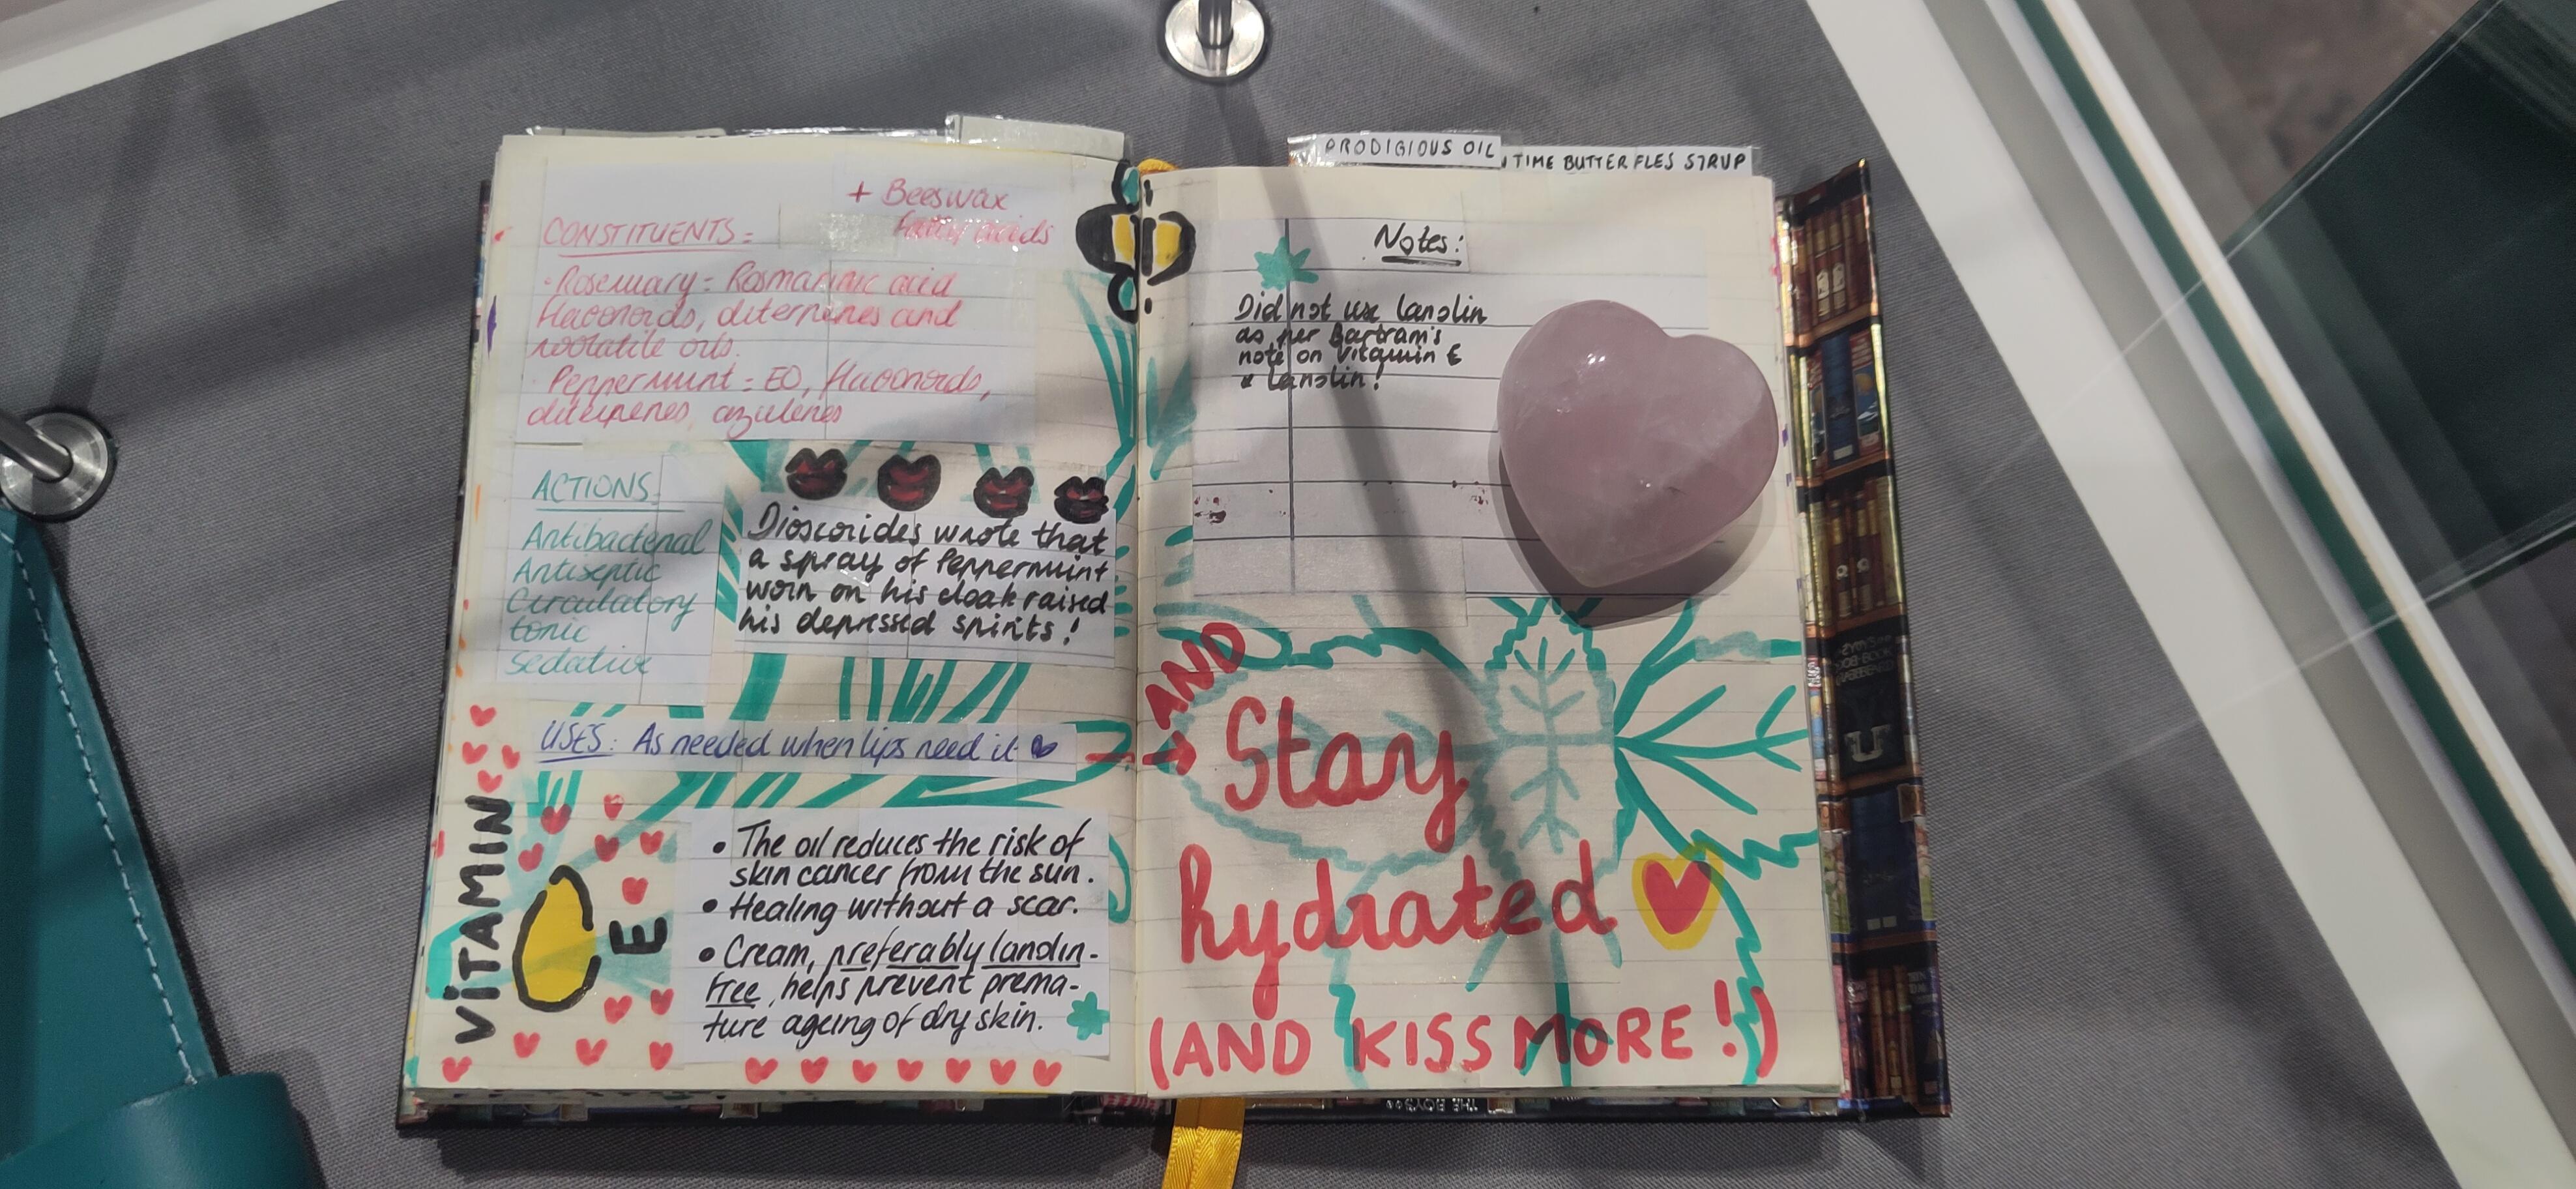 + Beeswax
fatty acids
CONSTITUENTS =
· Rosemary = Rosmarinic acid
flavonoids, diterpenes and
volatile oils.
Peppermint = EO, flavonoids,
diterpenes, azulenes
ACTIONS
Antibacterial
Antiseptic
Circulatory
tonic
Sedative
Dioscorides wrote that
a spray of Peppermint
worn on his cloak raised
his depressed spirits!
USES: As needed when lips need it
VITAMIN
E
• The oil reduces the risk of
skin cancer from the sun.
• Healing without a scar.
• Cream, preferably lanolin-
free, helps prevent prema-
ture ageing of dry skin.
PRODIGIOUS OIL
TIME BUTTERFLES SYRUP
Notes:
Did not use lanolin
as per Bartram's
note on Vitamin E
& lanolin!
AND
→ Stay
hydrated
(AND KISS MORE!)